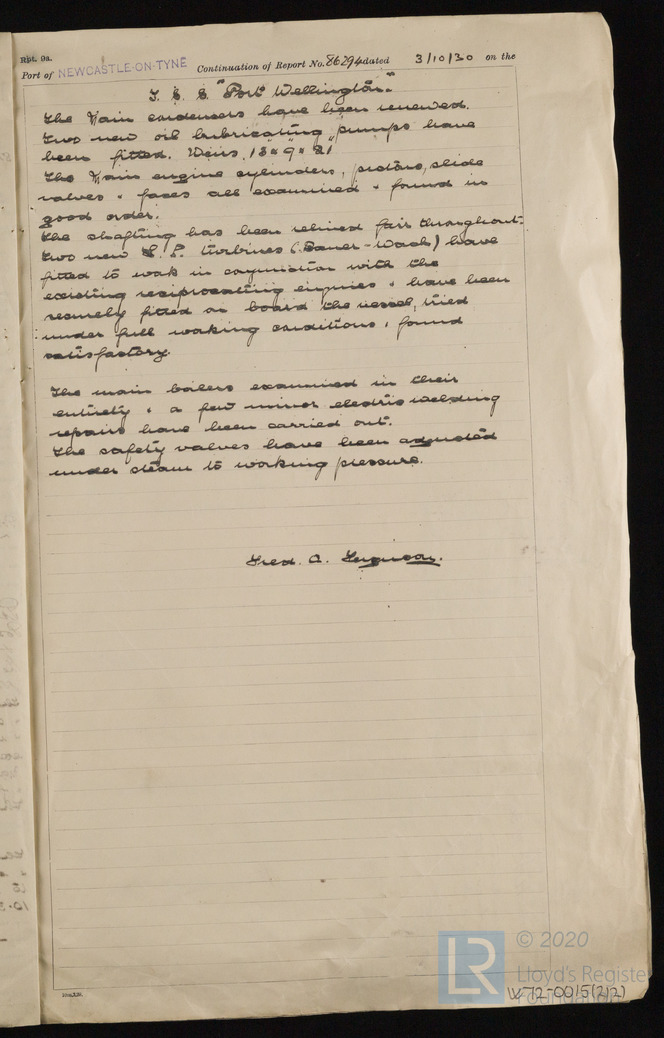 Rpt. 9a.
Port of NEWCASTLE-ON-TYNE Continuation of Report No. 86294 dated 3/10/30 on the
T. S. S. "Port Wellington."
The Main condensers have been renewed.
Two new oil lubricating pumps have
been fitted. Weirs, 13" × 9" × 21"
The Main engine cylinders, pistons, slide
valves & faces all examined & found in
good order.
The shafting has been relined fair throughout.
Two new L. P. turbines (Bauer-Wach) have
fitted to work in conjunction with the
existing reciprocating engines & have been
securely fitted on board the vessel, tried
under full working conditions & found
satisfactory.
The main boilers examined in their
entirety & a few minor electric welding
repairs have been carried out.
The safety valves have been adjusted
under steam to working pressure.
Fred. A. Ferguson.
© 2020
LR
Lloyd's Register
Foundation
W72-0015(2/2)